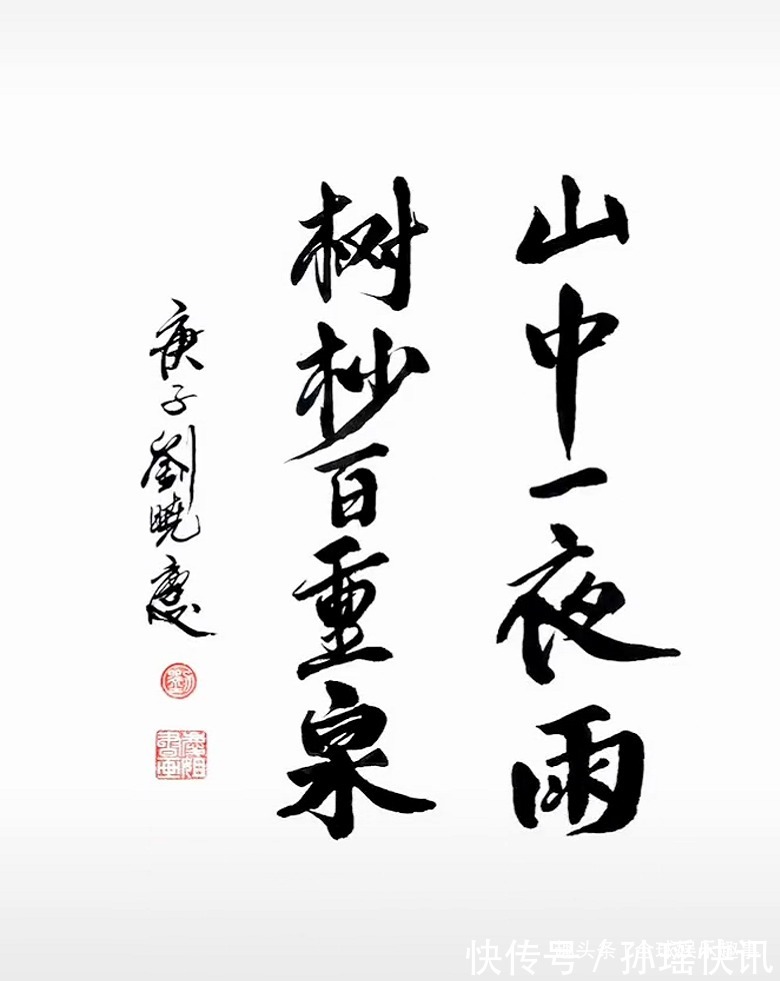 山中一夜雨
树杪百重泉
庚子劉曉慶
劉
快传号/孙瑶快讯